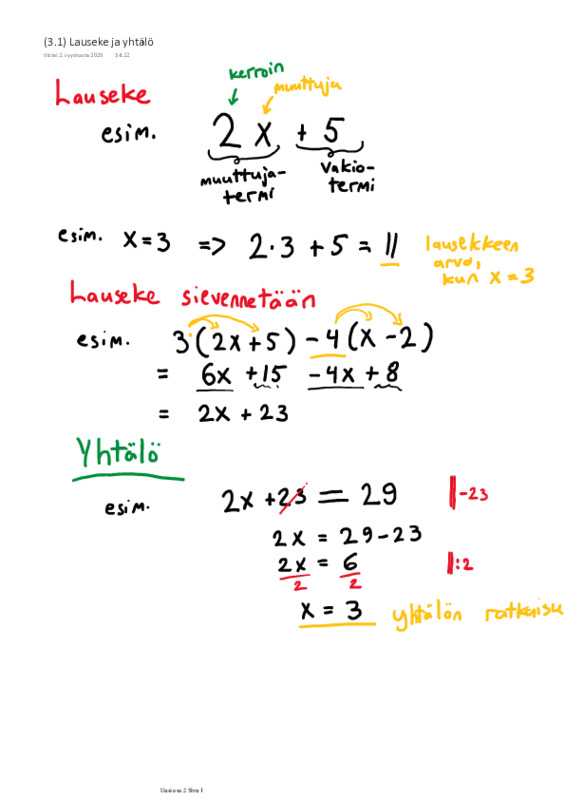 (3.1) Lauseke ja yhtälö
2. syyskuuta 2025 14.22
Lauseke
kerroin
muuttuja
esim. 2x + 5
muuttuja-
termi
vakio-
termi
esim. x=3 => 2·3 + 5 = 11
lausekkeen
arvo,
kun x=3
Lauseke sievennetään
esim. 3·(2x+5) -4(x-2)
= 6x +15 -4x +8
= 2x + 23
Yhtälö
esim. 2x +23 = 29 ‖-23
2x = 29-23
2x = 6 ‖:2
2 2
x = 3 yhtälön ratkaisu